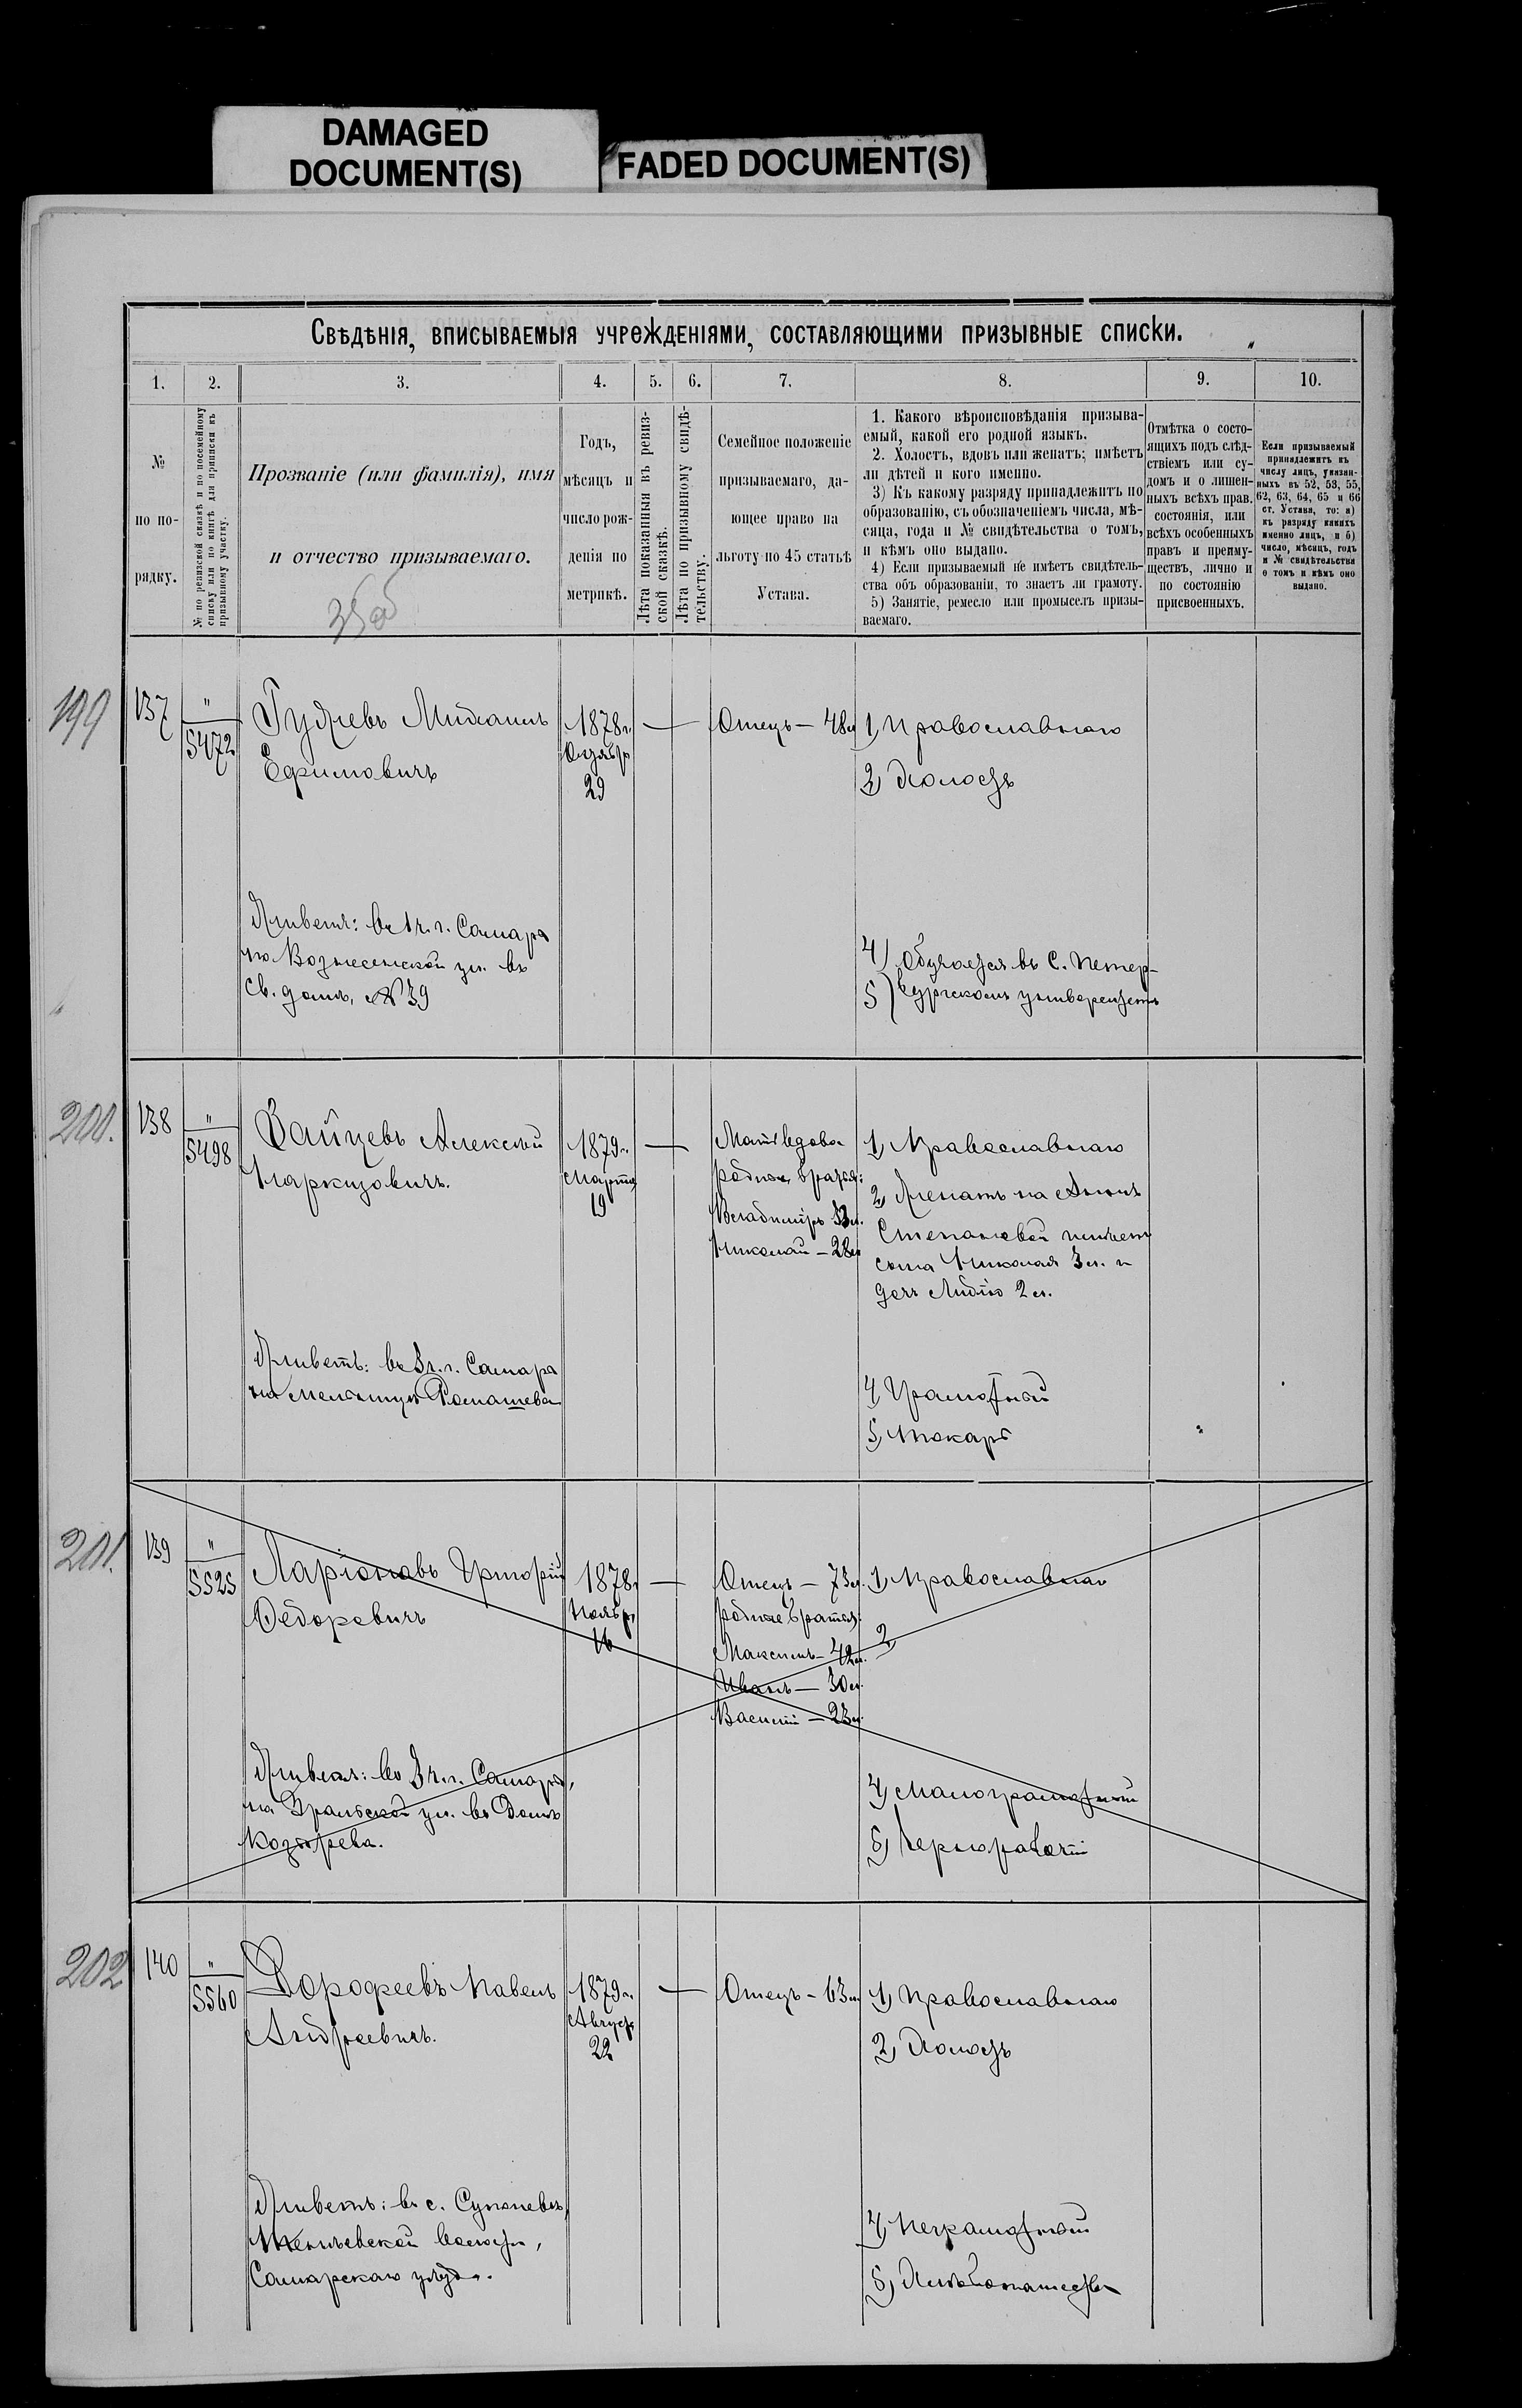 DAMAGED
DOCUMENT(S)
FADED DOCUMENT(S)
Свѣдѣнія, вписываемыя учрежденіями, составляющими призывные списки.
1. 2. 3. 4. 5. 6. 7. 8. 9. 10.
№
по по-
рядку.
№ по ревизской сказкѣ и по посемейному
списку или по книгѣ для приписки къ
призывному участку.
Прозваніе (или фамилія), имя
и отчество призываемаго.
Годъ,
мѣсяцъ и
число рож-
денія по
метрикѣ.
Лѣта показанныя въ ревиз-
ской сказкѣ.
Лѣта по призывному свидѣ-
тельству.
Семейное положеніе
призываемаго, да-
ющее право на
льготу по 45 статьѣ
Устава.
1. Какого вѣроисповѣданія призыва-
емый, какой его родной языкъ.
2. Холостъ, вдовъ или женатъ; имѣетъ
ли дѣтей и кого именно.
3) Къ какому разряду принадлежитъ по
образованію, съ обозначеніемъ числа, мѣ-
сяца, года и № свидѣтельства о томъ,
и кѣмъ оно выдано.
4) Если призываемый не имѣетъ свидѣтель-
ства объ образованіи, то знаетъ ли грамоту.
5) Занятіе, ремесло или промыселъ призы-
ваемаго.
Отмѣтка о состо-
ящихъ подъ слѣд-
ствіемъ или су-
домъ и о лишен-
ныхъ всѣхъ прав.
состоянія, или
всѣхъ особенныхъ
правъ и преиму-
ществъ, лично и
по состоянію
присвоенныхъ.
Если призываемый
принадлежитъ къ
числу лицъ, указан-
ныхъ въ 52, 53, 55,
62, 63, 64, 65 и 66
ст. Устава, то: а)
къ разряду какихъ
именно лицъ, и б)
число, мѣсяцъ, годъ
и № свидѣтельства
о томъ и кѣмъ оно
выдано.
199
137
"
5472
Михаилъ
Ефимовичъ
1878г.
Октябр
29
Отецъ — 48л
1, Православнаго
2, Холостъ
Живетъ: въ 1 ч. г. Самара
по Вознесенской ул. въ
св. домѣ, № 39
4) Обучается въ С. Петер-
5) бургскомъ университетѣ
200.
138
"
5498
Зайцевъ Алексѣй
Наркизовичъ.
1879г.
Марта
19
Мать вдова
родные братья:
Владиміръ
Николай — 28л
1, Православнаго
2, Женатъ на Аннѣ
Степановой имѣетъ
сына Николая 3 л. и
дочь Лидію 2 л.
Живетъ: въ 3 ч. г. Самара
на мельницѣ Ромашева
4, Грамотный
5, Токарь
201.
139
"
5525
Ларіоновъ Григорій
Федоровичъ
1878г
Ноябр
16
Отецъ — 73л.
родные братья:
Максимъ — 42л.
Иванъ — 30л.
Василій — 23л.
1, Православнаго
2,
Живетъ: въ 3 ч. г. Самары,
на Уральской ул. въ домѣ
Козырева.
4, Малограмотный
5, Чернорабочій
202
140
"
5560
Дорофеевъ Павелъ
Андреевичъ.
1879г.
Август
22
Отецъ — 63л
1, Православнаго
2, Холостъ
Живетъ: въ с.
волости,
Самарскаго уѣзда.
4, Неграмотный
5, Хлѣбопашество